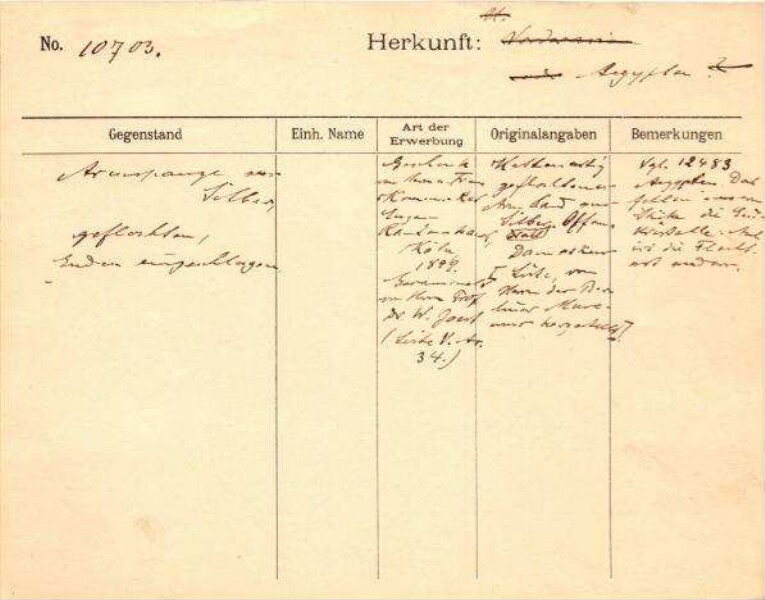 No. 10703.
Herkunft:
Vorderasien
oder Aegypten ?
Gegenstand
Einh. Name
Art der
Erwerbung
Originalangaben
Bemerkungen
Armspange aus
Silber,
geflochten,
Enden eingeschlagen
Geschenk
von Frau
Eugen
Rautenstrauch,
Köln
1899.
Gesammelt
von Herrn Prof.
Dr. W. Joest
(Liste V. Ar.
34.)
Kettenartig
geflochtenes
Armband aus
Silber. Offen.
Damaskus
[Liste, von
Herrn der Ber-
liner Muse-
ums hergestellt]
Vgl. 12483
Aegypten
Stücke die
ist die Flecht-
art anders.